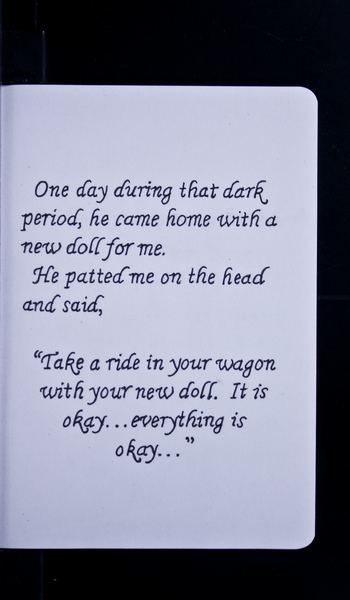 One day during that dark
period, he came home with a
new doll for me.
He patted me on the head
and said,
“Take a ride in your wagon
with your new doll. It is
okay...everything is
okay...”